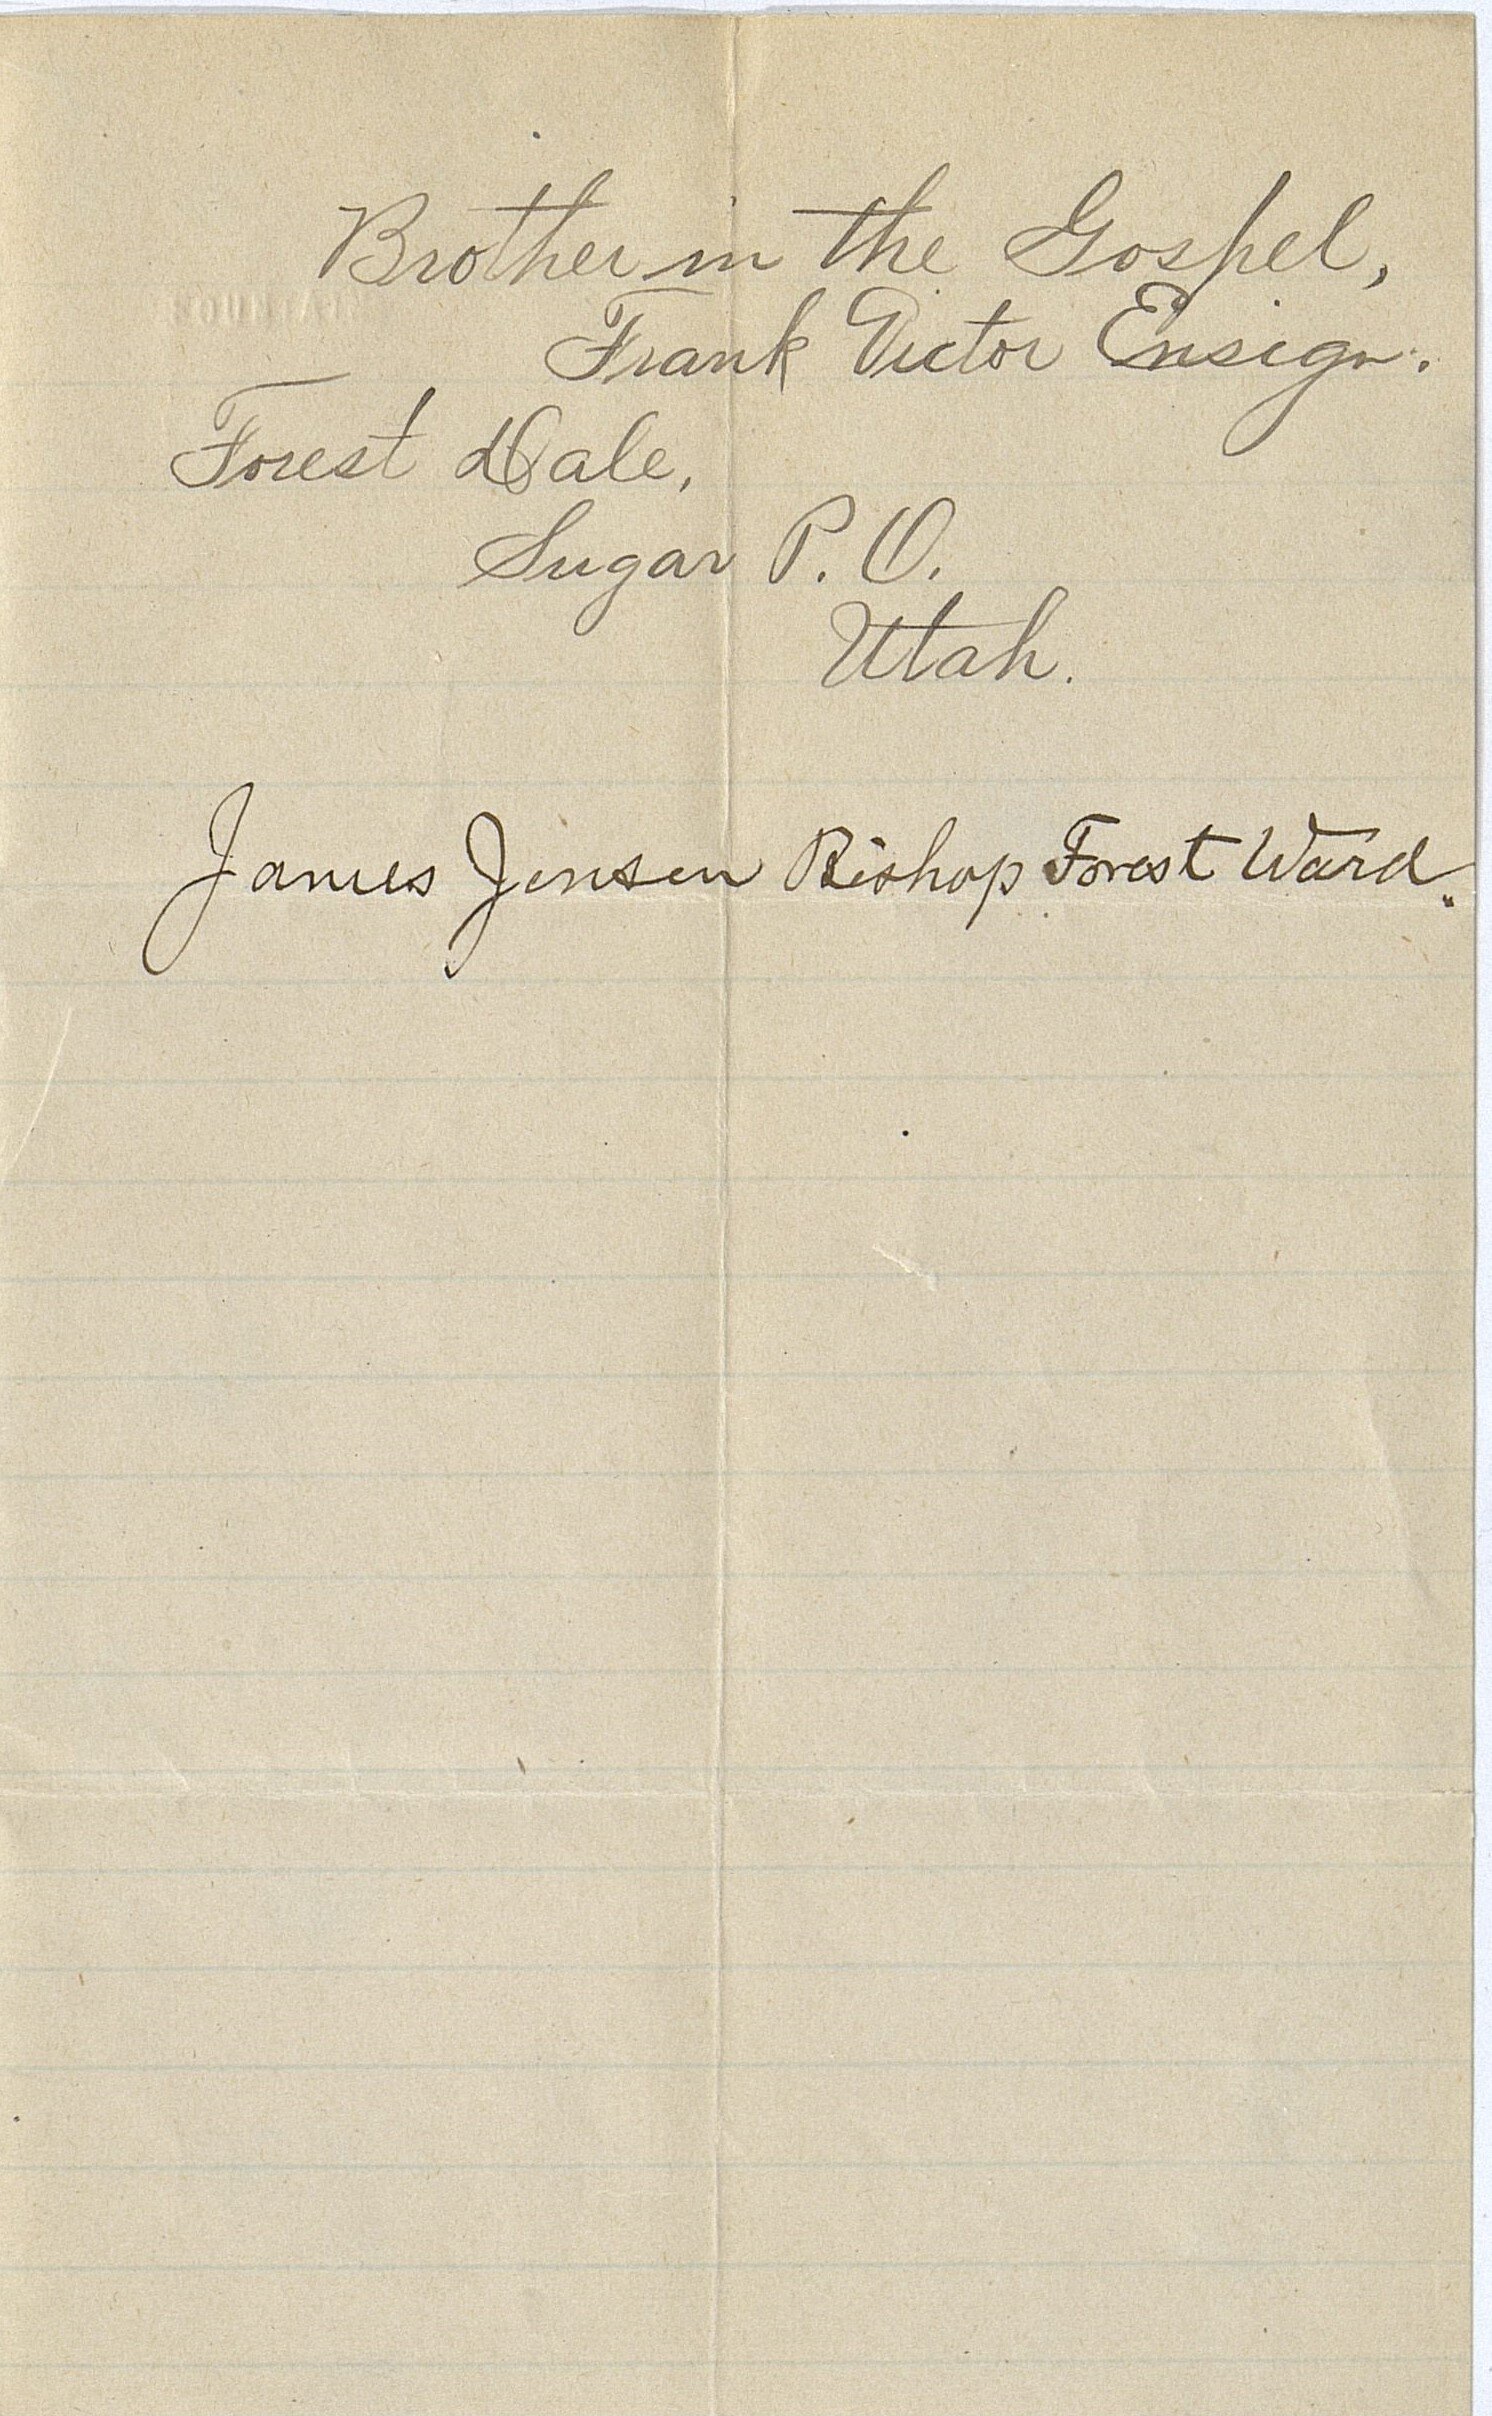 Brother in the Gospel,
Frank Victor Ensign.
Forest Dale,
Sugar P.O.
Utah.
James Jensen Bishop Forest Ward.